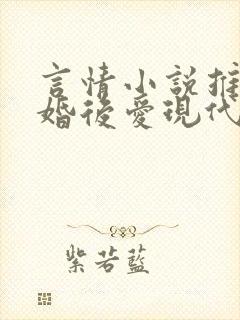 言情小說推
婚後愛現代
紫若藍